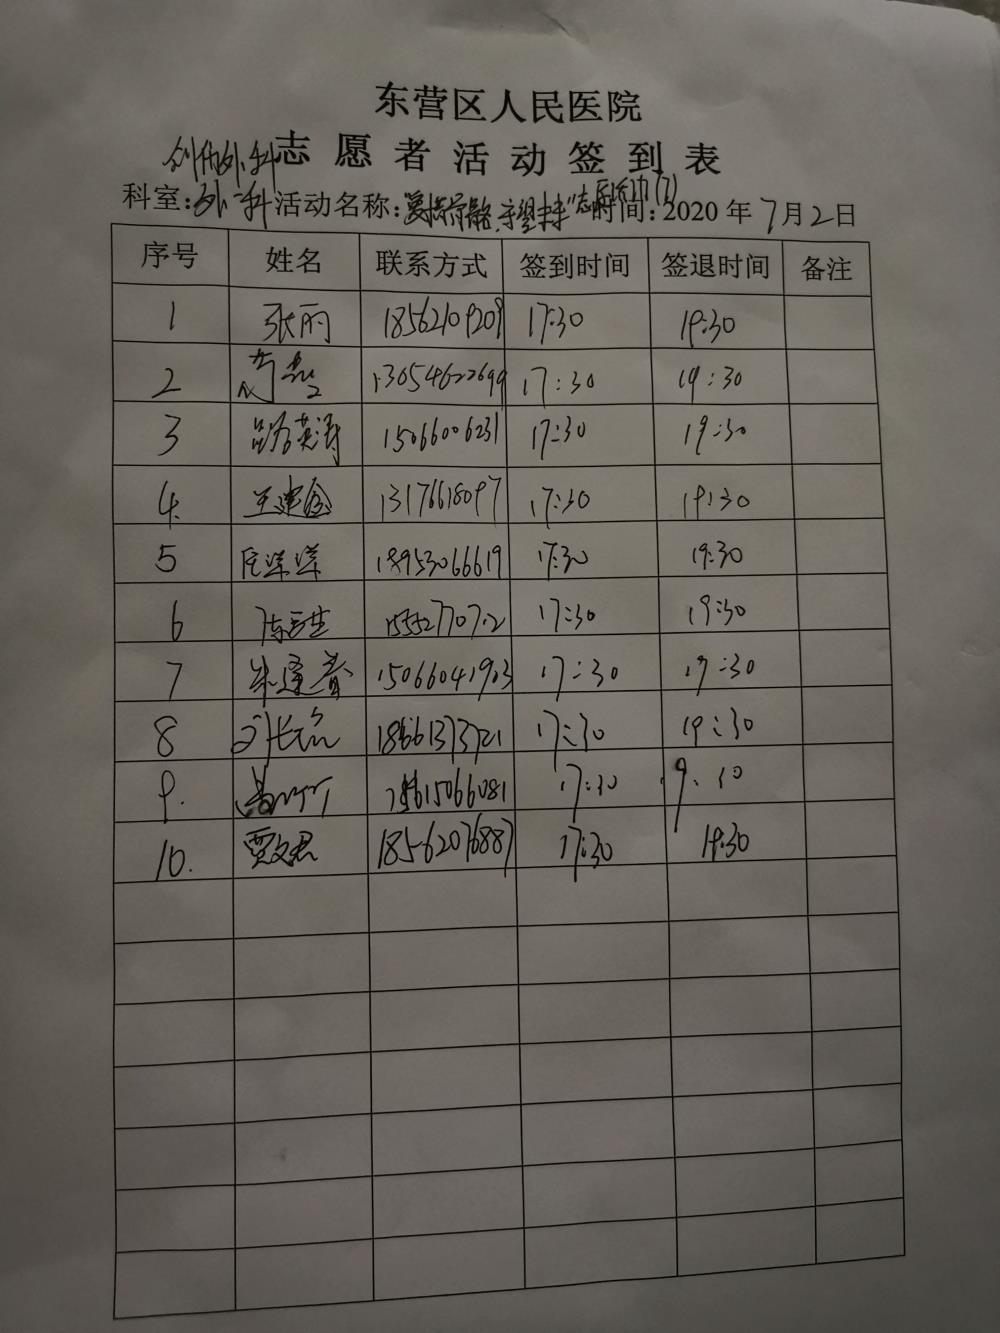 东营区人民医院
创伤外科 志愿者活动签到表
科室:外一科 活动名称: 志愿活动(7) 时间:2020年7月2日
序号 姓名 联系方式 签到时间 签退时间 备注
1 张丽 18562109209 17:30 19:30
2 13054622699 17:30 19:30
3 路英涛 15066006231 17:30 19:30
4. 王建国 13176618097 17:30 19:30
5 18953066619 17:30 19:30
6 17:30 19:30
7 朱逢春 15066041903 17:30 19:30
8 18661373721 17:30 19:30
9. 17:30 19:30
10. 贾文君 18562076887 17:30 19:30